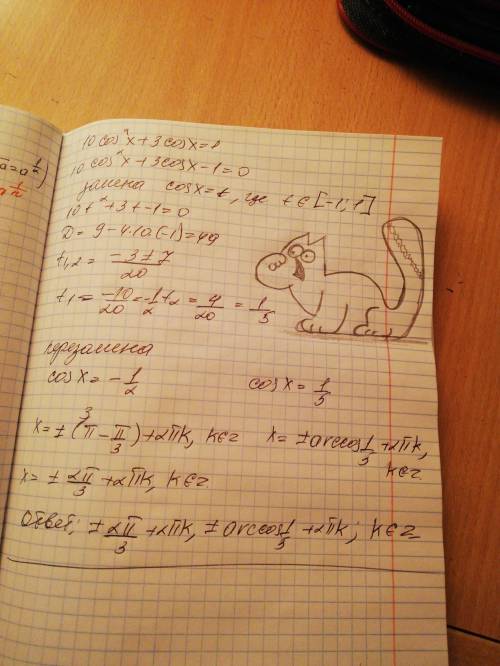 a = a^(1/n))
a^(1/n)
10cos²x+3cosx=1
10cos²x+3cosx-1=0
замена cosx=t, где t∈[-1;1]
10t²+3t-1=0
D=9-4·10·(-1)=49
t₁,₂ = (-3±7)/20
t₁ = -10/20 = -1/2 t₂ = 4/20 = 1/5
перезамена
cosx = -1/2 cosx = 1/5
3
x = ±(π - π/3)+2πk, k∈z x = ±arccos 1/5 +2πk,
k∈z
x = ± 2π/3 +2πk, k∈z
ответ: ± 2π/3 +2πk, ± arccos 1/5 +2πk; k∈z